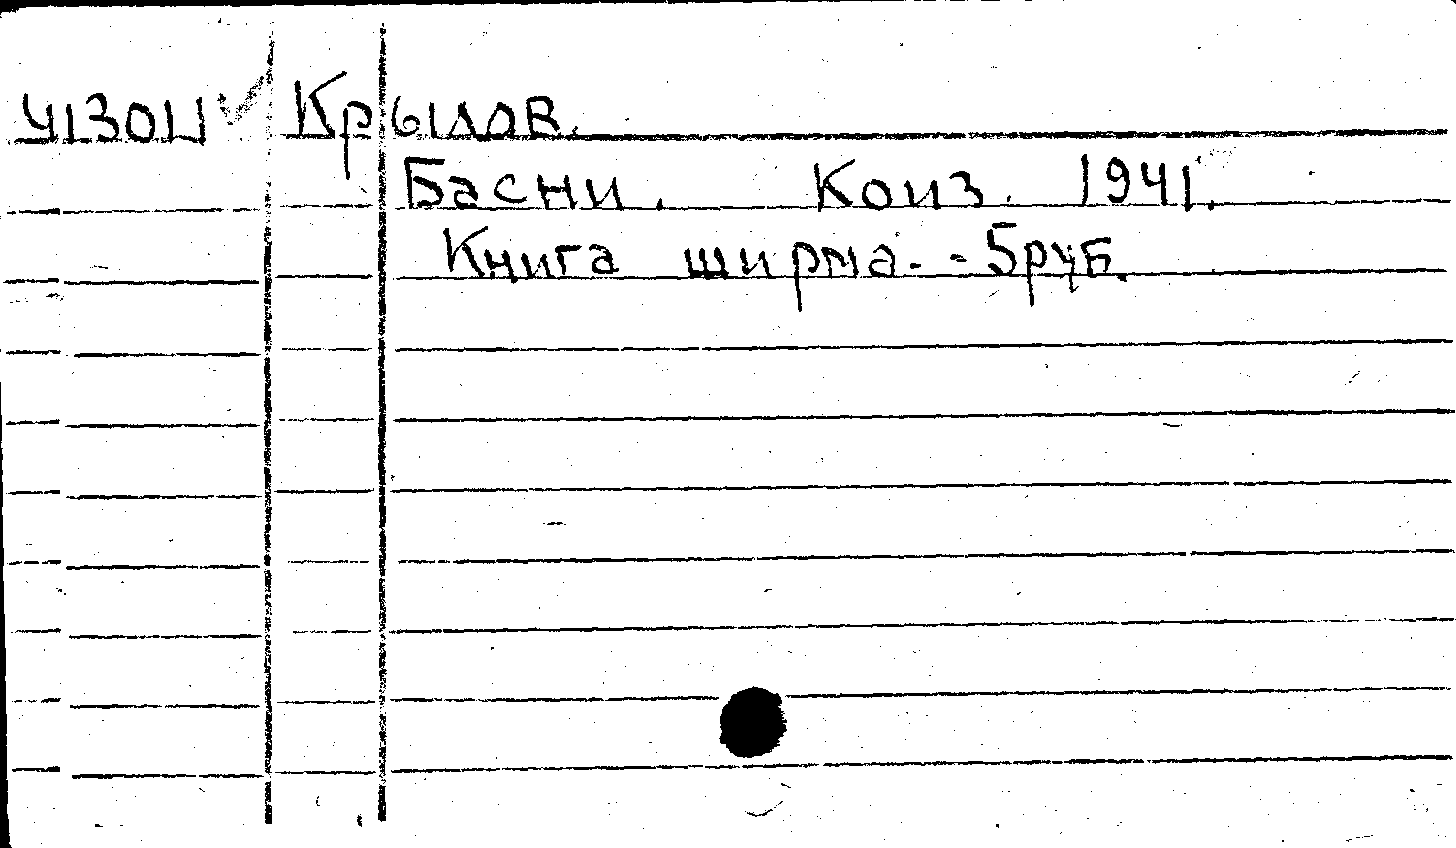 Крылов.
Басни. Коиз. 1941.
Книга ширма. - 5 руб.